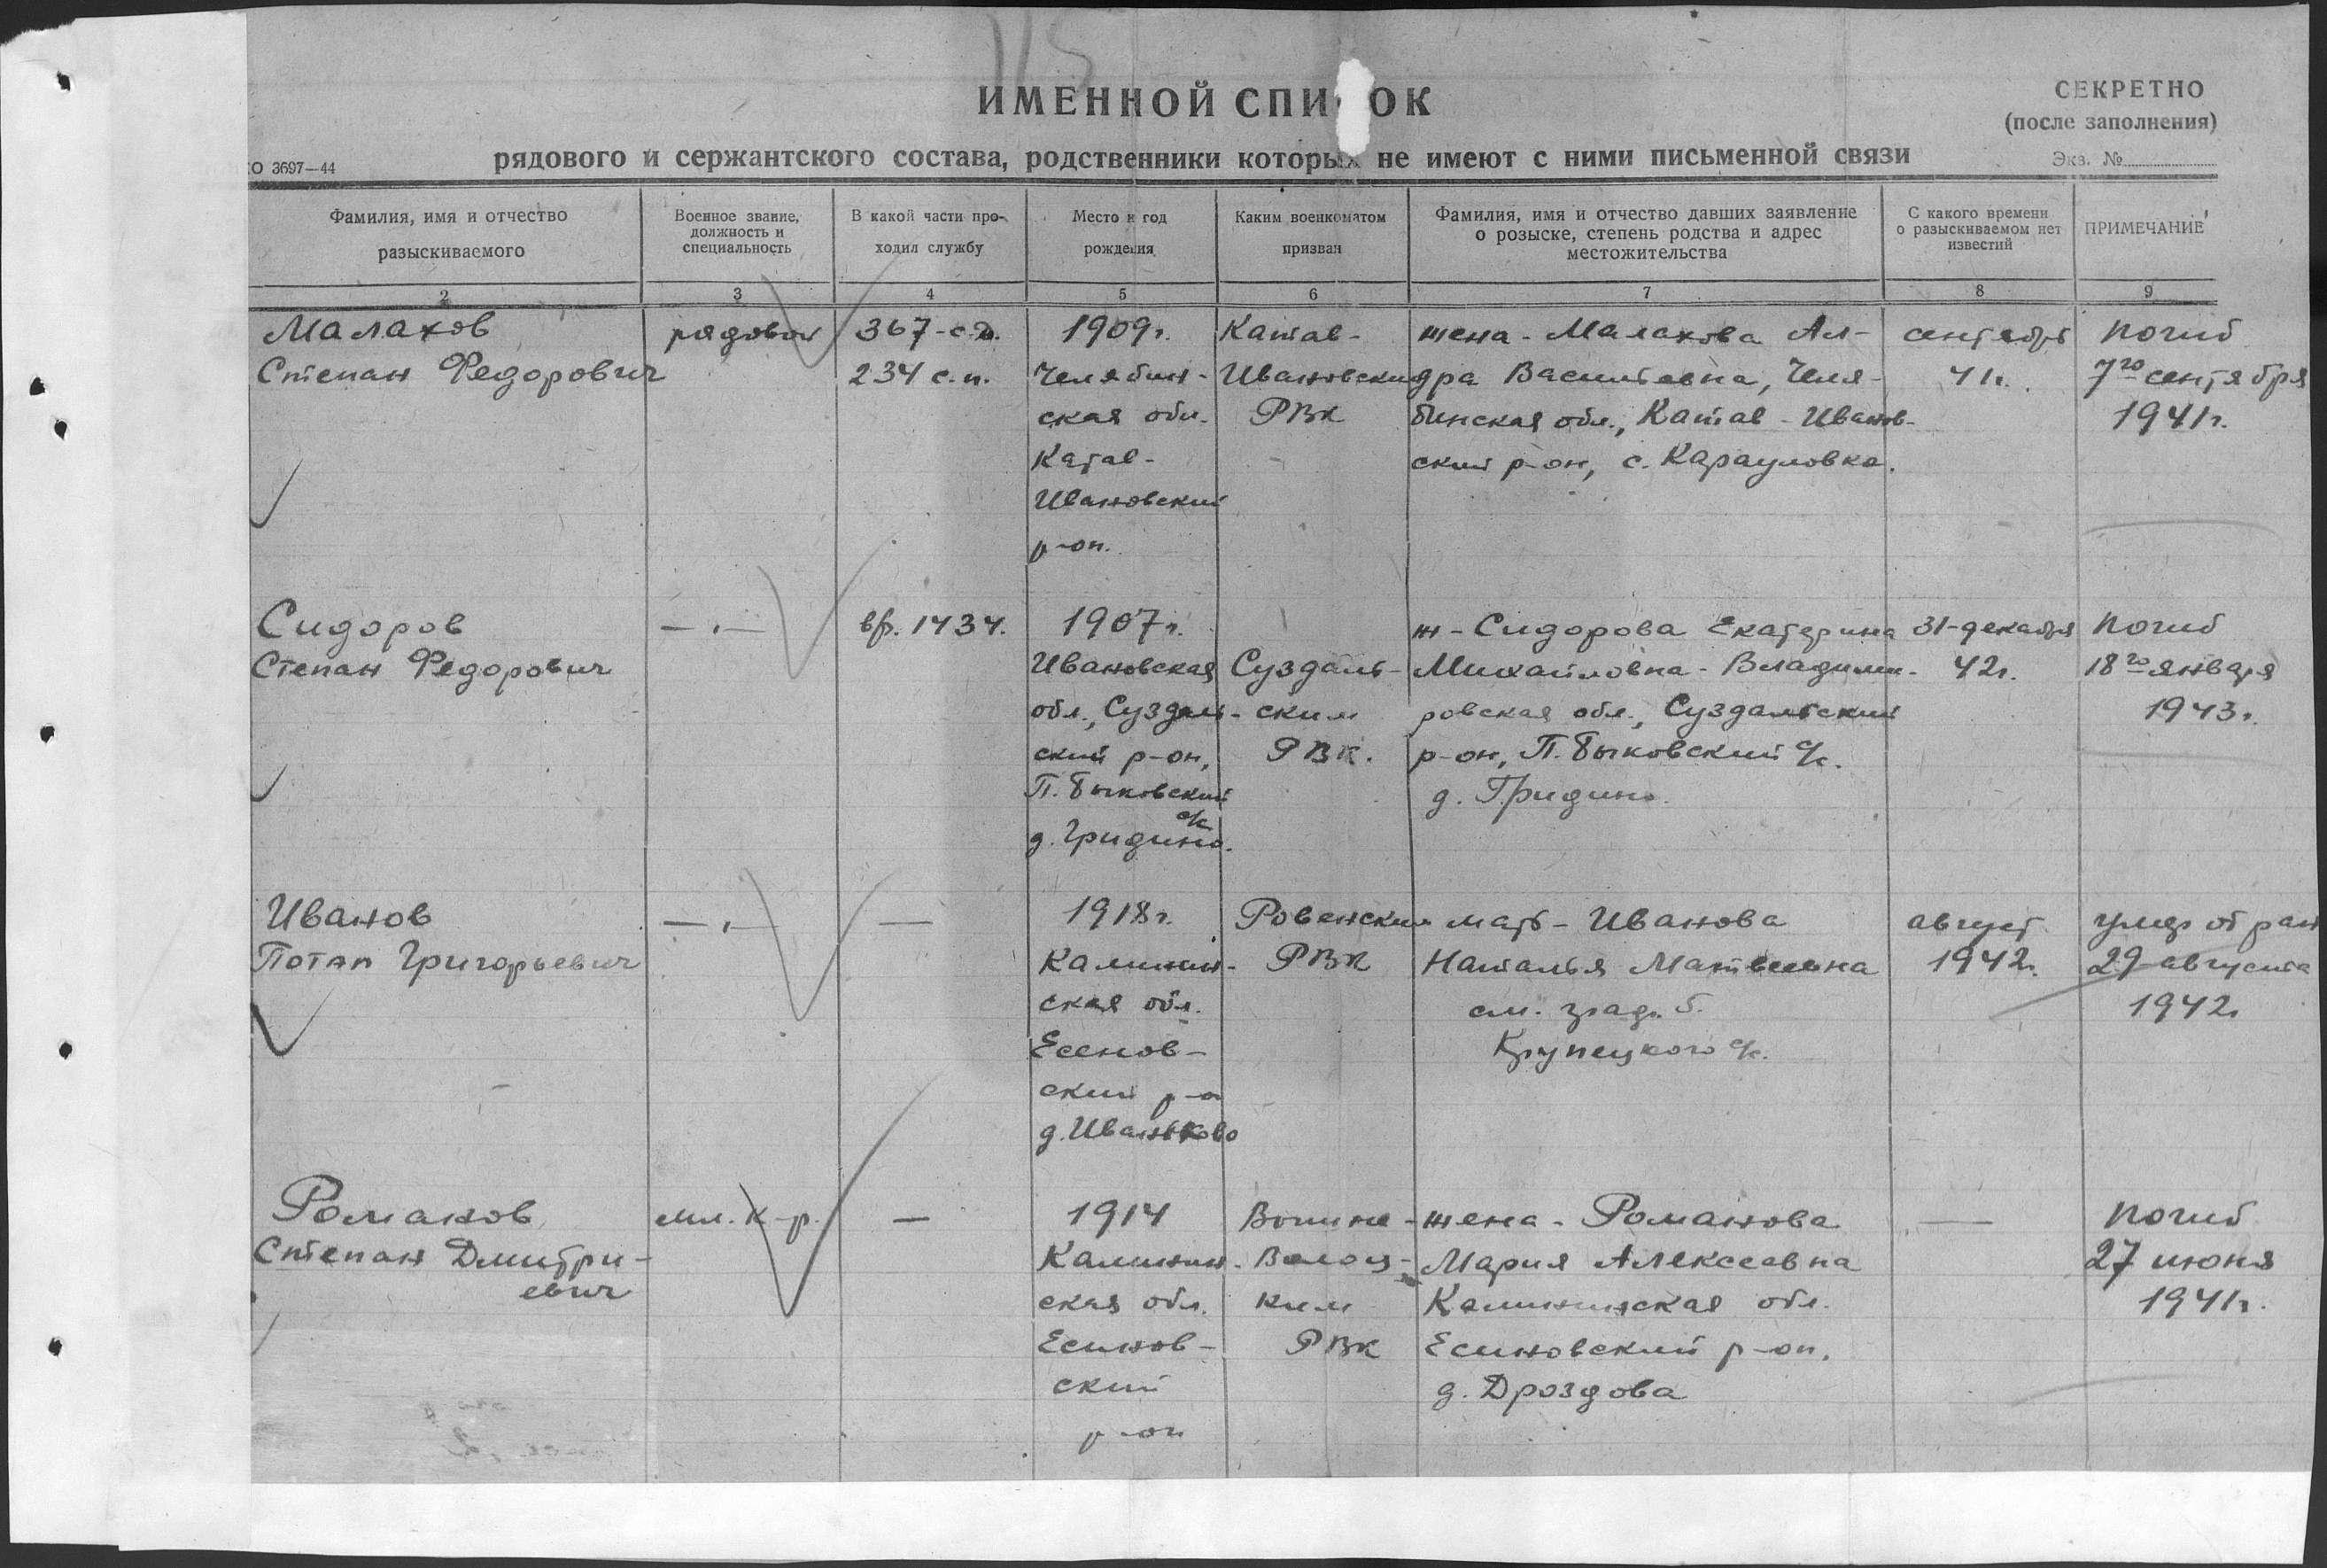 115
ИМЕННОЙ СПИ ОК
СЕКРЕТНО
(после заполнения)
Экз. №
О 3697—44
рядового и сержантского состава, родственники которых не имеют с ними письменной связи
Фамилия, имя и отчество
разыскиваемого
Военное звание,
должность и
специальность
В какой части про-
ходил службу
Место и год
рождения
Каким военкоматом
призван
Фамилия, имя и отчество давших заявление
о розыске, степень родства и адрес
местожительства
С какого времени
о разыскиваемом нет
известий
ПРИМЕЧАНИЕ
2 3 4 5 6 7 8 9
Малахов
Степан Федорович
рядовой
367-с.д.
234 с.п.
1909г.
Челябин-
ская обл.
Катав-
Ивановский
р-он.
Катав-
Ивановским
РВК
жена - Малахова Ал-
дра Васильевна, Челя-
бинская обл., Катав - Иванов-
ский р-он, с. Карауловка.
сентябрь
41г.
погиб
7го сентября
1941г.
Сидоров
Степан Федорович
—„—
1434.
1907г.
Ивановская
обл., Суздаль-
ский р-он,
П. Быковский
с/с.
д. Гридино.
Суздаль-
ским
РВК.
ж - Сидорова Екатерина
Михайловна - Владими-
ровская обл., Суздальский
р-он, П. Быковский с/с.
д. Гридино.
31-декабря
42г.
погиб
18го января
1943г.
Иванов
Потап Григорьевич
—„—
—
1918г.
Калинин-
ская обл.
Есенов-
ский р-н
д. Иваньково
Ровенским
РВК
мать - Иванова
Наталья Матвеевна
ст. град. Б.
Крупецкого с/с.
август
1942г.
умер от ран
29 августа
1942г
Романов
Степан Дмитри-
евич
мл. к-р.
—
1914
Калинин-
ская обл.
Есинов-
ский
р-он
Вышне-
Волоц-
ким
РВК
жена - Романова
Мария Алексеевна
Калининская обл.
Есиновский р-он.
д. Дроздова
—
погиб
27 июня
1941г.